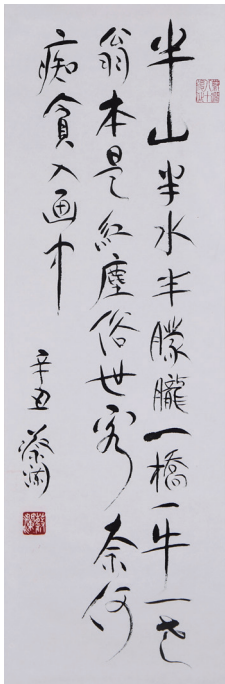 半山半水半朦朧一橋一牛一老
翁本是紅塵俗世客奈何
痴貪入画中
辛丑 蔡瀾
蔡瀾